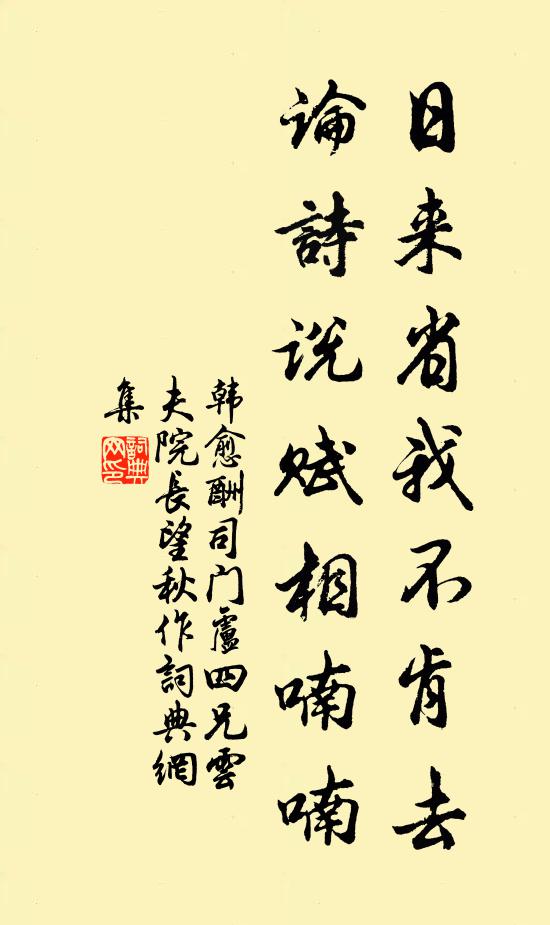 日来省我不肯去
論詩説赋相喃喃
韩愈酬司门盧四兄雲
夫院長望秋作詞典網
集
詞典
网印